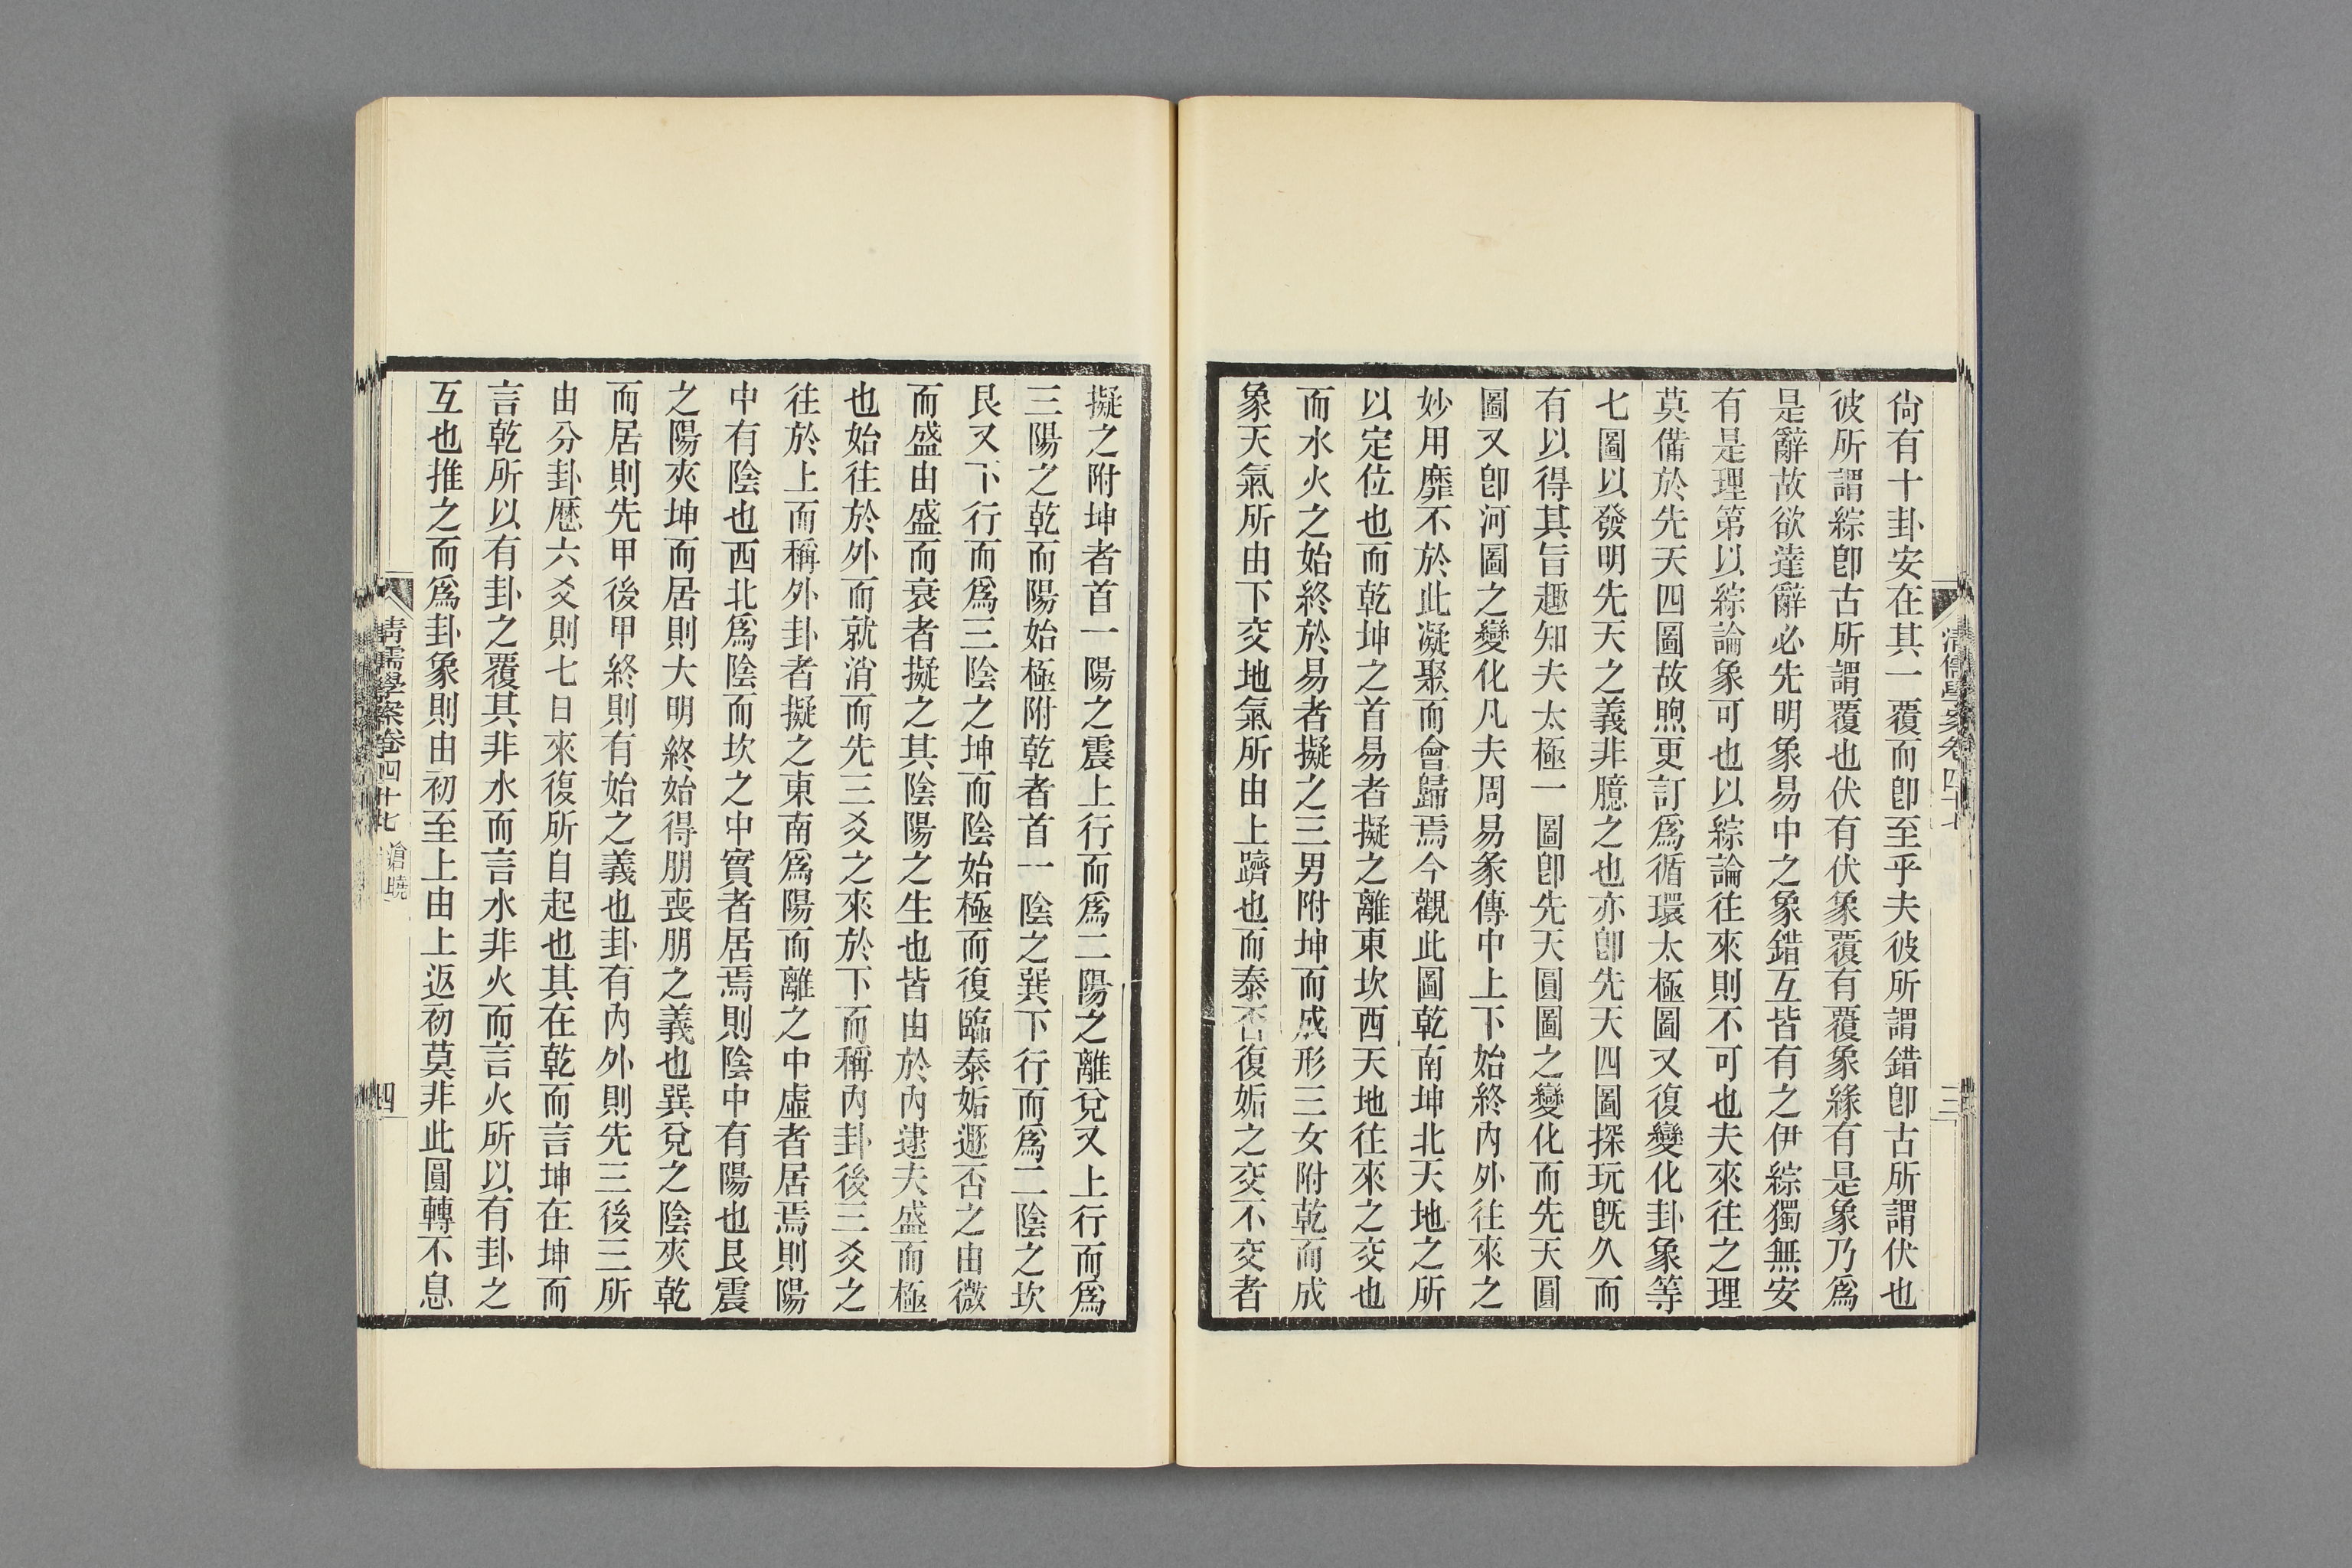 清儒學案卷四十七
三
尙有十卦安在其一覆而卽至乎夫彼所謂錯卽古所謂伏也
彼所謂綜卽古所謂覆也伏有伏象覆有覆象緣有是象乃爲
是辭故欲達辭必先明象易中之象錯互皆有之伊綜獨無安
有是理第以綜論象可也以綜論往來則不可也夫來往之理
莫備於先天四圖故煦更訂爲循環太極圖又復變化卦象等
七圖以發明先天之義非臆之也亦卽先天四圖探玩旣久而
有以得其旨趣知夫太極一圖卽先天圓圖之變化而先天圓
圖又卽河圖之變化凡夫周易彖傳中上下始終內外往來之
妙用靡不於此凝聚而會歸焉今觀此圖乾南坤北天地之所
以定位也而乾坤之首易者擬之離東坎西天地往來之交也
而水火之始終於易者擬之三男附坤而成形三女附乾而成
象天氣所由下交地氣所由上躋也而泰否復姤之交不交者
擬之附坤者首一陽之震上行而爲二陽之離兌又上行而爲
三陽之乾而陽始極附乾者首一陰之巽下行而爲二陰之坎
艮又下行而爲三陰之坤而陰始極而復臨泰姤遯否之由微
而盛由盛而衰者擬之其陰陽之生也皆由於內逮夫盛而極
也始往於外而就消而先三爻之來於下而稱內卦後三爻之
往於上而稱外卦者擬之東南爲陽而離之中虛者居焉則陽
中有陰也西北爲陰而坎之中實者居焉則陰中有陽也艮震
之陽夾坤而居則大明終始得朋喪朋之義也巽兌之陰夾乾
而居則先甲後甲終則有始之義也卦有內外則先三後三所
由分卦歷六爻則七日來復所自起也其在乾而言坤在坤而
言乾所以有卦之覆其非水而言水非火而言火所以有卦之
互也推之而爲卦象則由初至上由上返初莫非此圓轉不息
清儒學案卷四十七 滄曉
四